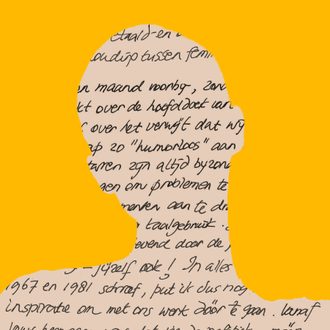 taald-en
oudig tussen femin
n maand voorbij, zond
kt over de hoofdoek van
f over het verwijt dat wij
ap zo "humorloos" aan
tarren zijn altijd byzon
gen om problemen te
menren aan te dr
taalgebruik.
evend door de
jezelf ook! In alles
1967 en 1981 schreef, put ik dus nog
inspiratie om met ons werk dóór te gaan. Vanaf